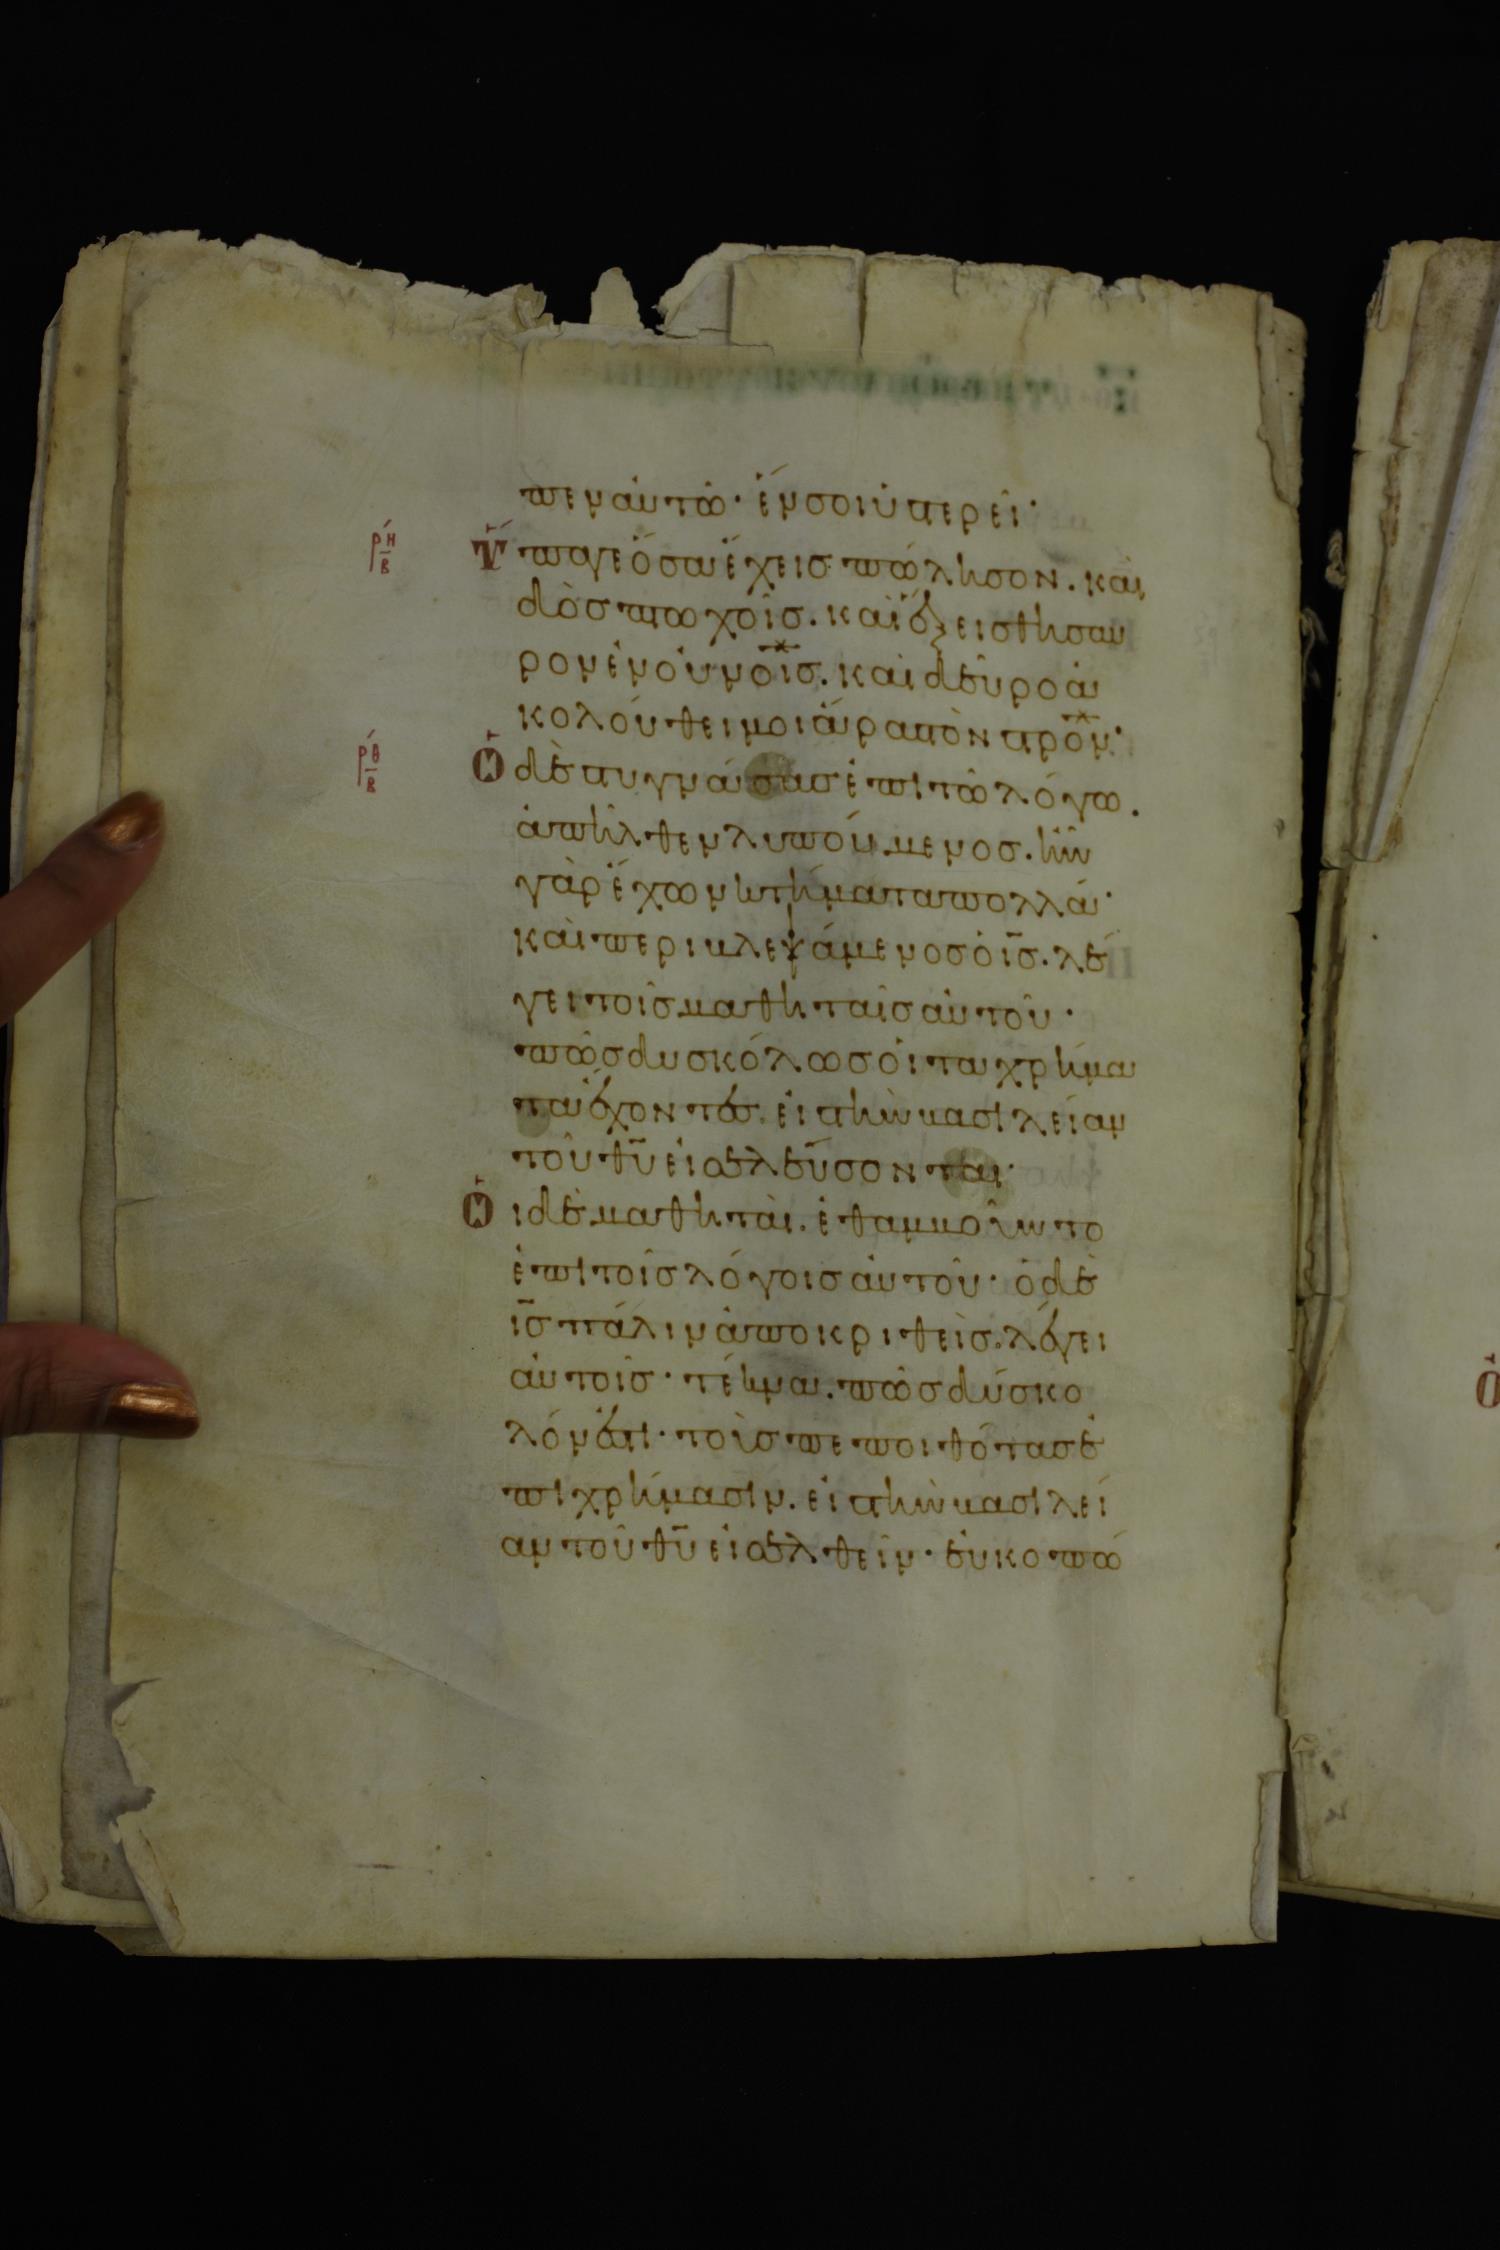 πεν αὐτῶ· ἕν σοι ὑστερεῖ·
ρη
β
Ὕπαγε ὅσα ἔχεις πώλησον. καὶ
δὸς πτωχοῖς. καὶ ἕξεις θησαυ
ρὸν ἐν οὐνοῖς. καὶ δεῦρο ἀ
κολούθει μοι ἄρας τὸν στρον·
ρθ
β
Ὁ δὲ στυγνάσας ἐπὶ τῶ λόγω.
ἀπῆλθεν λυπούμενος. ἦν
γὰρ ἔχων κτήματα πολλά·
καὶ περιβλεψάμενος ὁ ις. λέ
γει τοῖς μαθηταῖς αὐτοῦ·
πῶς δυσκόλως οἱ τὰ χρήμα
τα ἔχοντες. εἰς τὴν βασιλείαν
τοῦ θυ εἰσελεύσονται·
Οἱ δὲ μαθηταὶ. ἐθαμβοῦντο
ἐπὶ τοῖς λόγοις αὐτοῦ· ὁ δὲ
ις πάλιν ἀποκριθεὶς. λέγει
αὐτοῖς· τέκνα. πῶς δύσκο
λόν ἐστι· τοὺς πεποιθότας ἐ
πὶ χρήμασιν. εἰς τὴν βασιλεί
αν τοῦ θυ εἰσελθεῖν· εὐκοπώ